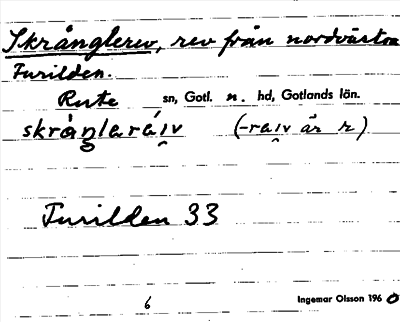 Skrånglerev, rev från nordvästra
Furilden.
Rute sn, Gotl. n. hd, Gotlands län.
skràŋlaráiv (-raiv är r)
Furilden 33
6
Ingemar Olsson 1960